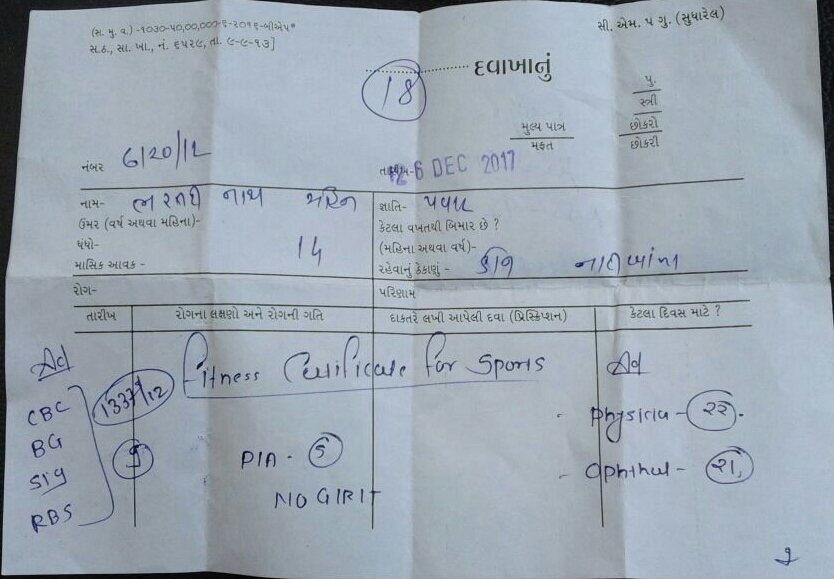 (સ. મુ. વ.) -૧૦૩૦-૫૦,૦૦,૦૦૦-૬-૨૦૧૬-બીએપ*
સ.ઠ., સા. ખા., નં. ૬૫૨૯, તા. ૯-૯-૧૩]
સી. એમ. પ ગુ. (સુધારેલ)
18
દવાખાનું
પુ.
સ્ત્રી
છોકરો
છોકરી
મુલ્ય પાત્ર
મફત
નંબર 6120/12
6 DEC 2017
નામ-
જ્ઞાતિ-
ઉમર (વર્ષ અથવા મહિના)-
કેટલા વખતથી બિમાર છે ?
ધંધો- 14
(મહિના અથવા વર્ષ)-
માસિક આવક -
રહેવાનું ઠેકાણું -
રોગ-
પરિણામ
તારીખ રોગના લક્ષણો અને રોગની ગતિ દાકતરે લખી આપેલી દવા (પ્રિસ્ક્રિપ્શન) કેટલા દિવસ માટે ?
Fitness Certificate For Sports
Ad
CBC
BG
RBS
1337/12
P/A - 5
NO G/R/T
Ad
- Physician - ૨૨.
- Ophthal - ૨૧,